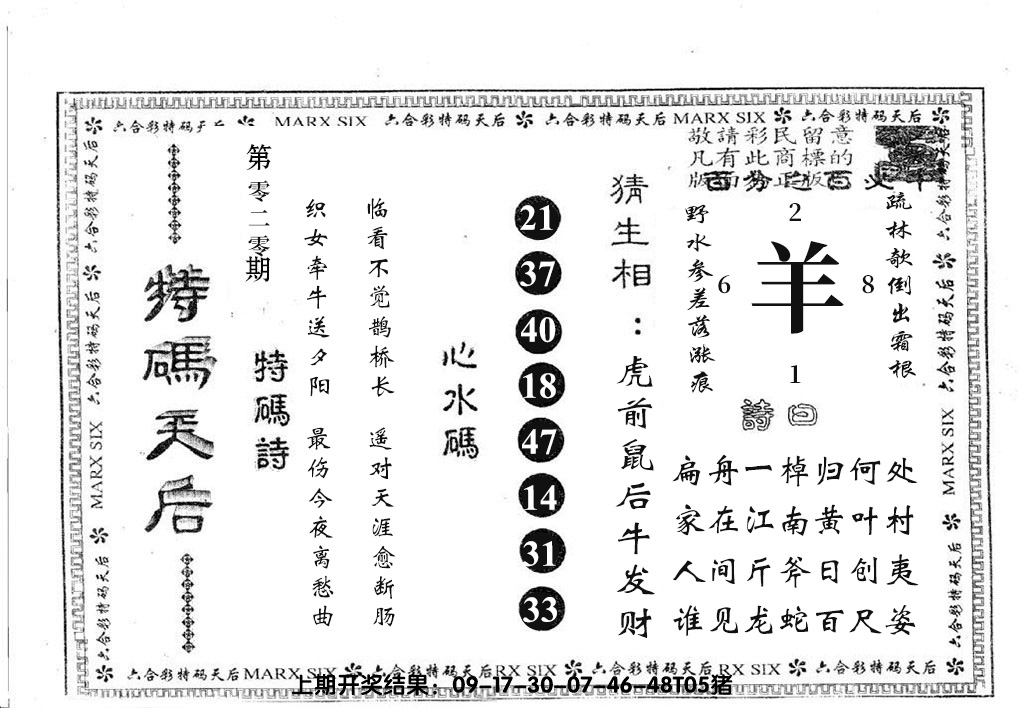 六合彩特码天后 MARX SIX 六合彩特码天后 六合彩特码天后 MARX SIX 六合彩特码天后
敬請彩民留意
凡有此商標的
特碼天后
第零二零期
特碼詩
织女牵牛送夕阳 最伤今夜离愁曲
临看不觉鹊桥长 遥对天涯愈断肠
心水碼
21
37
40
18
47
14
31
33
猜生相:虎前鼠后牛发财
野水参差落涨痕
2
6 羊 8
1
疏林欹倒出霜根
詩曰
扁舟一棹归何处
家在江南黄叶村
人间斤斧日创夷
谁见龙蛇百尺姿
六合彩特码天后
MARX SIX
六合彩特码天后
六合彩特码天后
六合彩特码天后
MARX SIX
六合彩特码天后
六合彩特码天后MARX SIX 六合彩特码天后RX SIX 六合彩特码天后RX SIX 六合彩特码天后
上期开奖结果：09-17-30-07-46-48T05猪